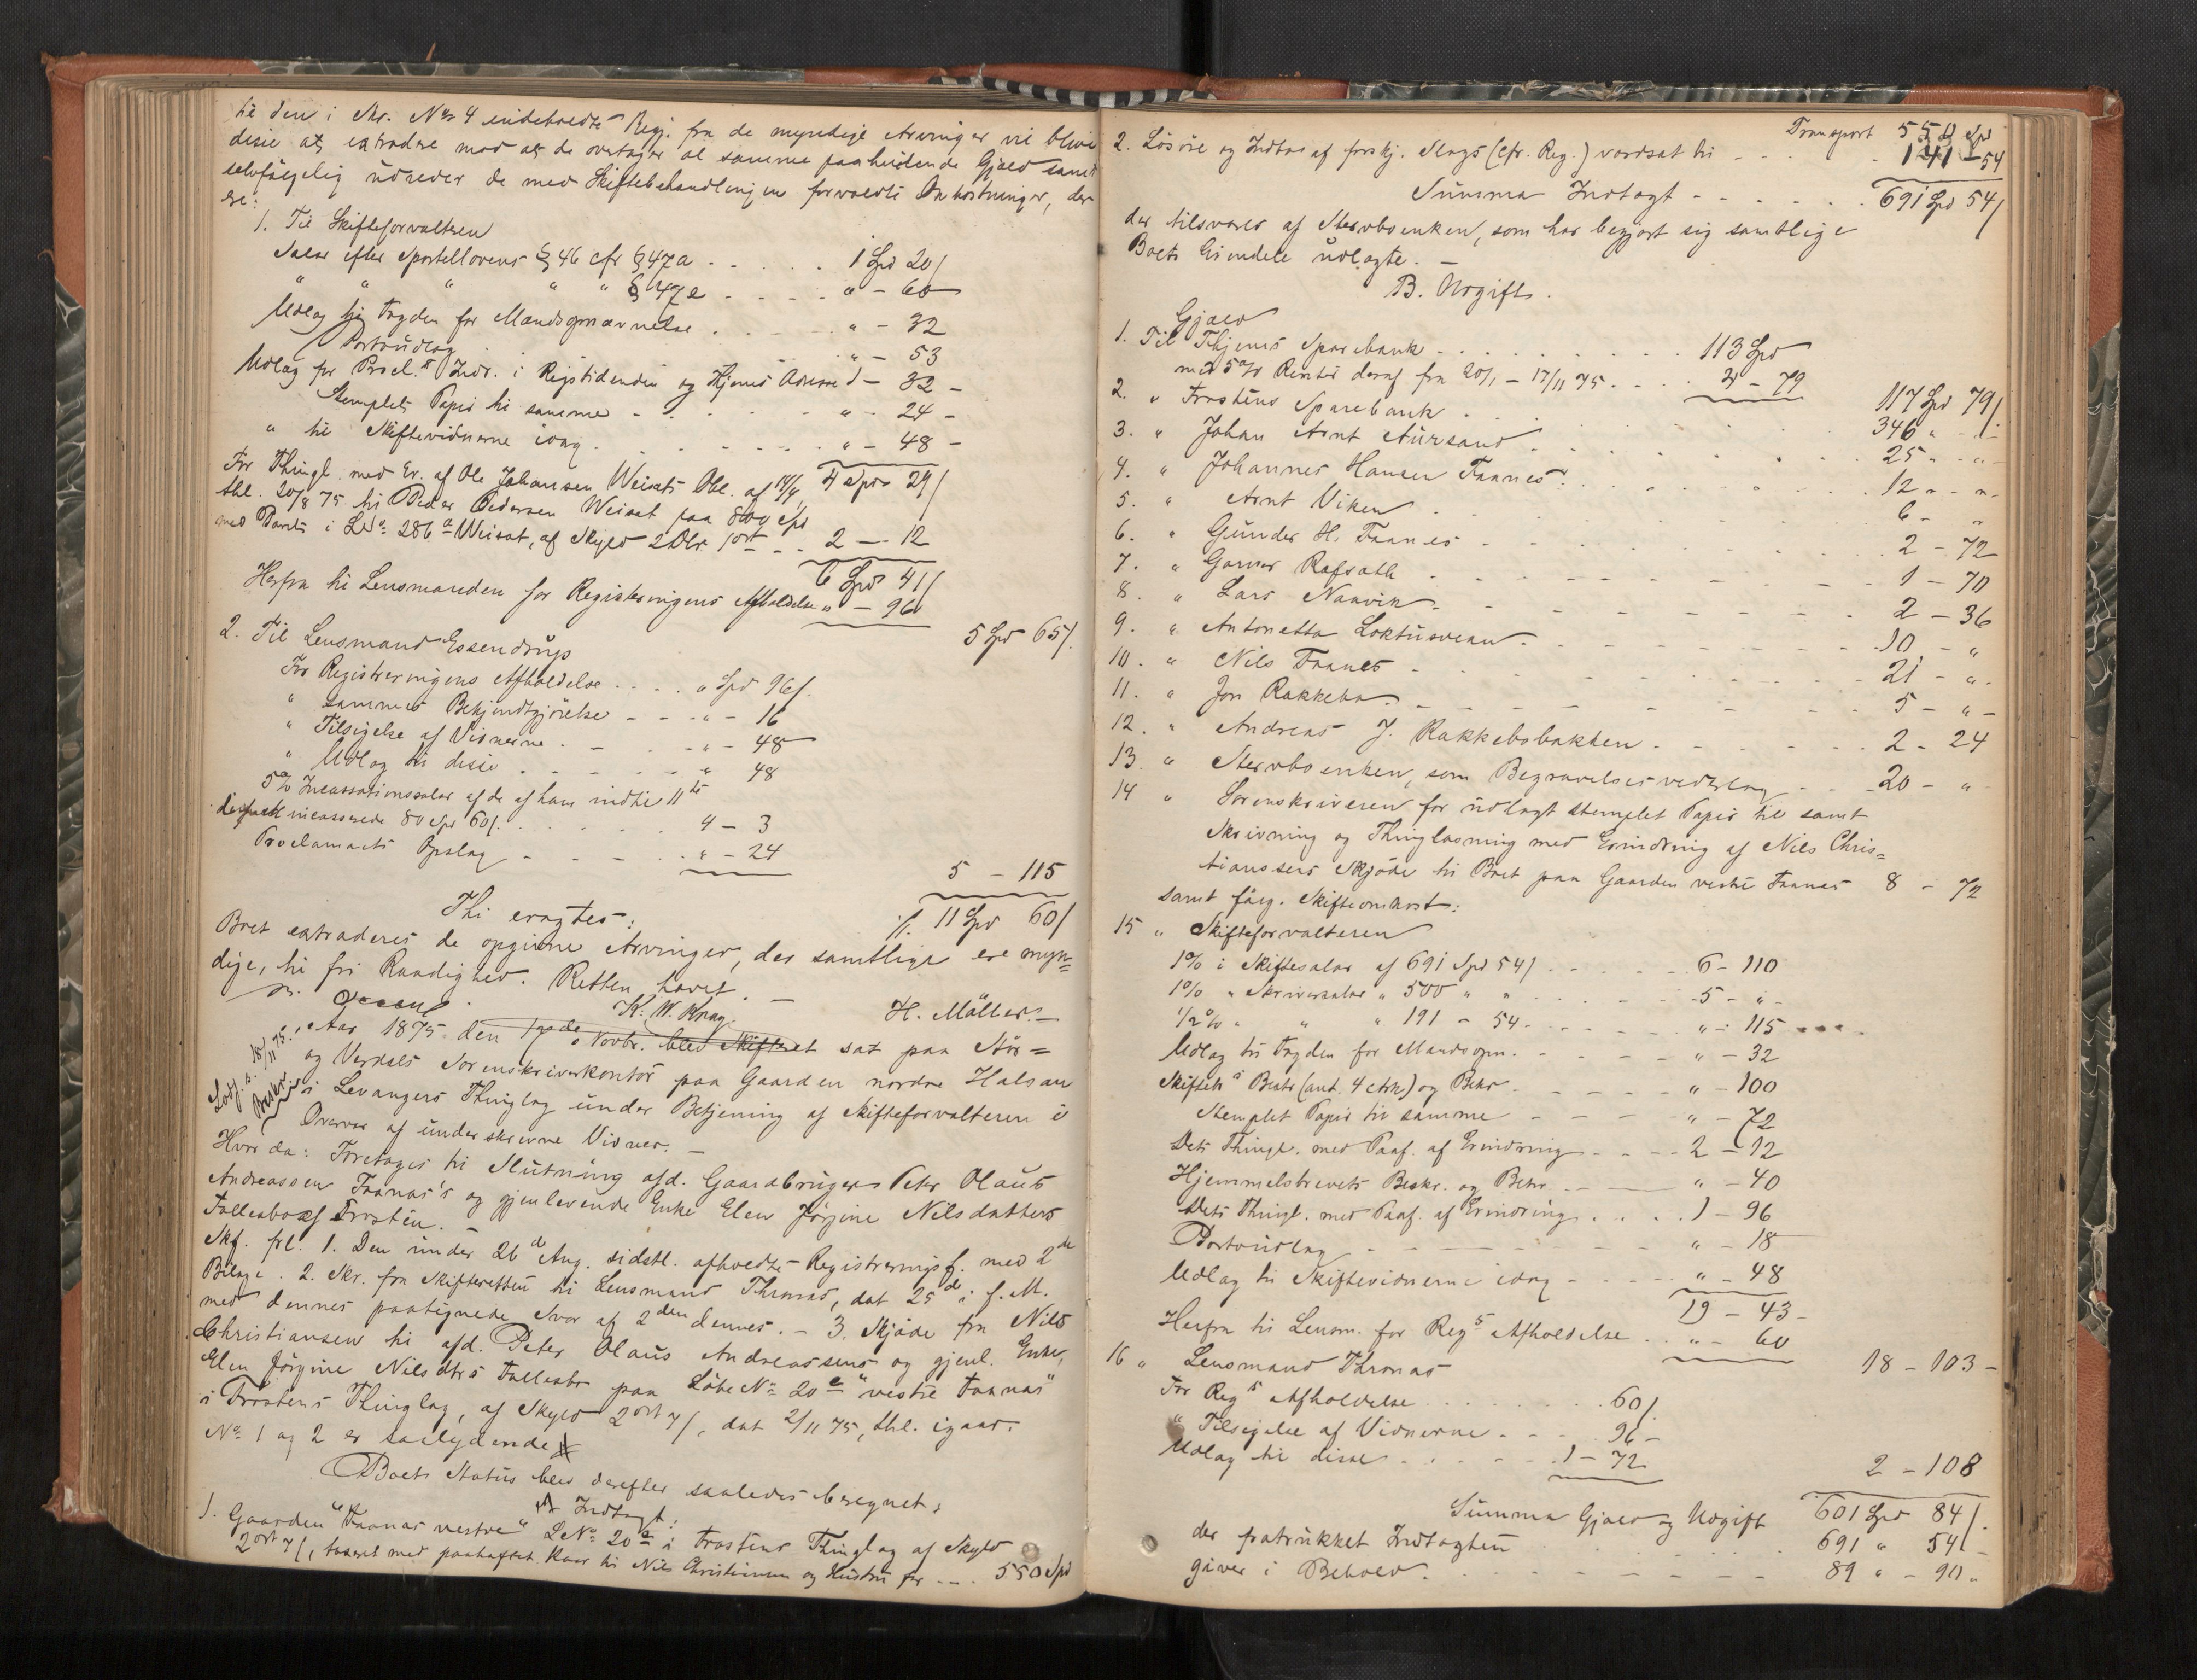 til den i Skr. No 4 indeholdte Begj. fra de myndige Arvinger vil blive
disse at extradere mod at de overtager al samme paahvilende Gjæld samt
selvfølgelig udreder de med Skiftebehandlingen forvoldte Omkostninger, der
ere:
1. Til Skifteforvalteren
Salær efter Sportellovens § 46 cfr § 47 a . . . . 1 Spd 20 s
" " " " " § 47 e . . . . " - 60
Udlag til Fogden for Mandsopnævnelse . . . " - 32
Portoudlag . . . " - 53
Udlag for Procl.s Indr. i Rigstidenden og Thjems Adresse 1 - 32 -
Stemplet Papir til samme - . . . " - 24 -
" til Skiftevidnerne idag . . . " - 48 -
4 Spd 29 s
For Thingl. med Er. af Ole Johansen Weisets Obl. af 14/4,
thl. 20/8 75 til Peder Pedersen Weiset paa 800 Spd
med Pant i L No 286 a Weiset, af Skyld 2 Dlr. 1 ort - . . 2 - 12
6 Spd 41 s
Herfra til Lensmanden for Registreringens Afholdelse " - 96
5 Spd 65 s.
2. Til Lensmand Essendrup
For Registreringens Afholdelse . . . . " Spd 96 s.
" sammes Bekjendtgjørelse - - . " - 16
" Tilsigelse af Vidnerne . - . - " - 48
" Udlag til disse . - - . - " 48
5 % Incassationssalær af de af ham indtil 11te
ds. incasserede 80 Spd 60 s. . . . . 4 - 3
Proclamaets Opslag - - - . . " - 24
5 - 115
./. 11 Spd 60 s
Thi eragtes:
Boet extraderes de opgivne Arvinger, der samtlige ere myn=
dige, til fri Raadighed. Retten hævet. -
K. W. Krag. H. Möller. -
Aar 1875 den 17de Novbr. blev Skifteret sat paa Stør=
og Verdals Sorenskriverkontor paa Gaarden nordre Halsan
i Levangers Thinglag under Betjening af Skifteforvalteren i
Overvær af underskrevne Vidner. -
Hvor da: Foretages til Slutning afd. Gaardbruger Peter Olaus
Andreassen Faanæs's og gjenlevende Enke Elen Jørgine Nilsdatters
Fællesbo af Frosten. -
Skf. frl. 1. Den under 26d Aug. sidstl. afholdte Registreringsf. med 2de
Bilage. 2. Skr. fra Skifteretten til Lensmand Thronæs, dat 25d i f. M.
med dennes paategnede Svar af 2den dennes. - 3. Skjøde fra Nils
Christiansen til afd. Peter Olaus Andreassens og gjenl. Enke,
Elen Jørgine Nilsdtrs Fællesbo paa Løbe No 20 e "vestre Faanæs"
i Frostens Thinglag, af Skyld 2 ort 7 s, dat 2/11 75, thl. igaar.
No 1 og 2 er saalydende
Boets Status blev derefter saaledes beregnet:
A Indtægt:
1. Gaarden "Faanæs vestre" L No 20 e i Frostens Thinglag af Skyld
2 ort 7 s, taxeret med paaheftet Kaar til Nils Christiansen og Hustru for - . . 550 Spd
Transport 550 Spd
2. Løsøre og Indbo af forskj. Slags (cfr. Reg.) værdsat til - . . . . 141 - 54
Summa Indtægt - - . . . . 691 Spd 54 s
der tilsvares af Stervboenken, som har begjært sig samtlige
Boets Eiendele udlagte. -
B. Udgift.
Gjæld
1. Til Thjems Sparebank . . . . . . . 113 Spd
med 5 % Renter deraf fra 20/1 - 17/11 75 . . . . 4 - 79
117 Spd 79 s
2. " Frostens Sparebank . . . 346 " - " -
3. " Johan Arnt Aursand . . . 25 - " -
4. " Johannes Hansen Faanes . . . 12 - " -
5. " Arnt Viken . . . 6 - "
6. " Gunder H. Faanes - . . . 2 - 72
7. " Garver Rafsath . - - - 1 - 70
8. " Lars Naavik - - - - 2 - 36
9. " Antonetta Loktusvean - - - - 10 - "
10. " Nils Faanes - . . . 21 - " -
11. " Jon Rakkebo - - - - 5 - " -
12. " Andreas J. Rakkebobakken . - - . . 2 - 24
13. " Stervboenken, som Begravelsesvederlag - - - 20 - "
14 " Sorenskriveren for udlagt stemplet Papir til samt
Skrivning og Thinglæsning med Erindring af Nils Chris=
tiansens Skjøde til Boet paa Gaarden vestre Faanæs 8 - 72
samt følg. Skifteomkost:
15 " Skifteforvalteren
1 % i Skiftesalær af 691 Spd 54 s . - - . . 6 - 110
1 % " Skriversalær " 500 " " . . . . 5 - " -
1/2 % " " " 191 - 54 - . . . " - 115
Udlag til Fogden for Mandsopn. - - - - " - 32
Skiftets Beskr (ant. 4 Ark) og Bekr - - - - " - 100
Stemplet Papir til samme - - - " - 72
Dets Thingl. med Paaf. af Erindring - - - 2 - 12
Hjemmelsbrevets Beskr. og Bekr. - - " - 40
Dets Thingl. med Paaf. af Erindring . . . 1 - 96
Portoudlag - - - - " - 18
Udlag til Skiftevidnerne idag - - - " - 48
19 - 43 -
Herfra til Lensm. for Regs Afholdelse . . " - 60
18 - 103 -
16 " Lensmand Thronæs
For Regs Afholdelse . . . . 60 s.
" Tilsigelse af Vidnerne - - . 96 -
Udlag til disse . . . . 1 - 72
2 - 108
Summa Gjæld og Udgift 601 Spd 84 s.
der fratrukket Indtægten . . . 691 " 54 -
giver i Behold . . . 89 " - 90 "